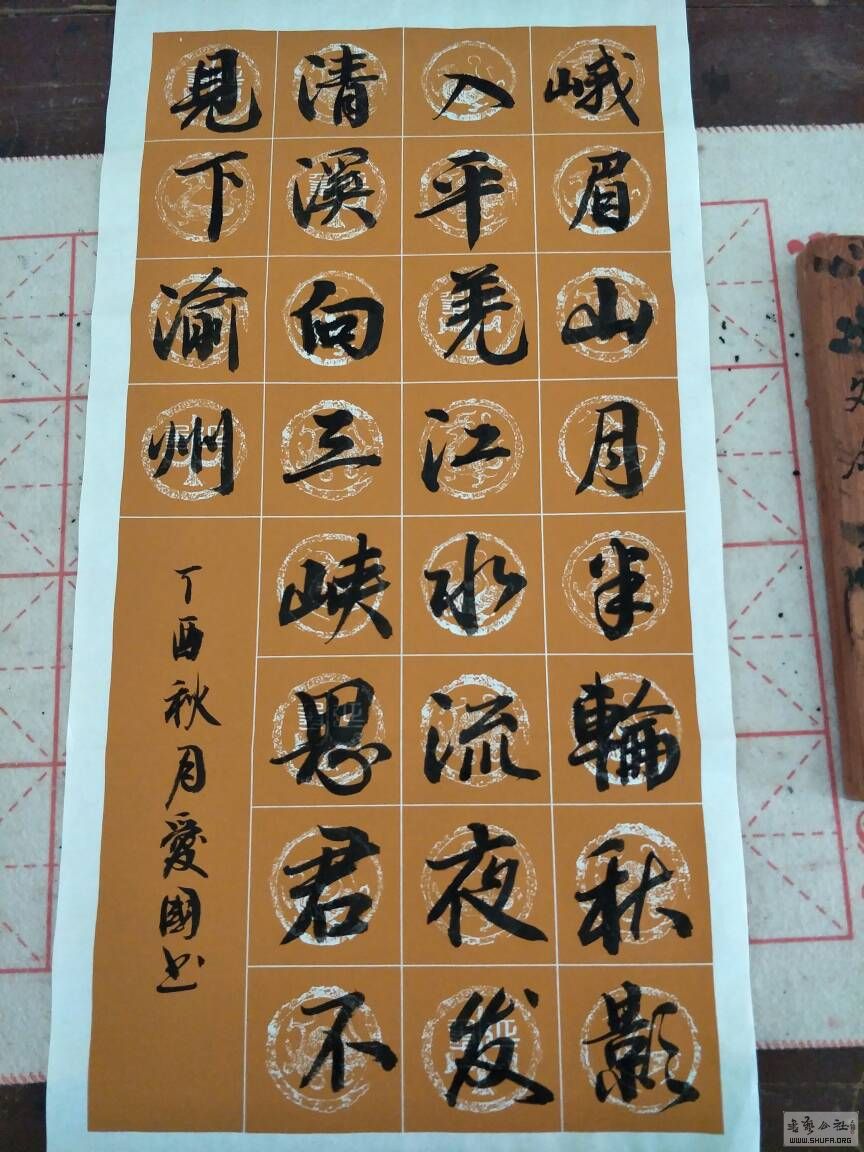 峨眉山月半輪秋影
入平羌江水流夜发
清溪向三峡思君不
見下渝州
丁酉秋月愛國书
书艺公社
WWW.SHUFA.ORG